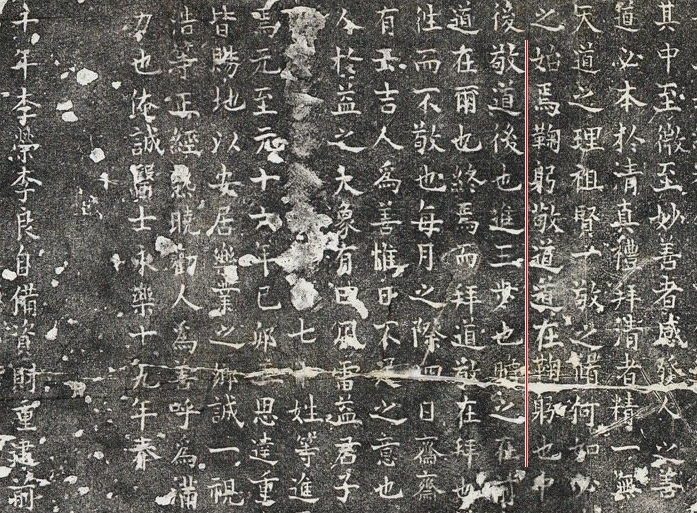 其中至微至妙善者感發人之善
道必本於清真禮拜清者精一無
天道之理祖賢一敬之儀何如必
之始焉鞠躬敬道道在鞠躬也中
後敬道後也進三步也瞻之在前
道在爾也終焉而拜道敬在拜也
往而不敬也每月之際四日齋齋
有云吉人為善惟日不足之意也
人於益之大象有曰風雷益君子
七十姓等進
焉元至元十六年己卯五思達重
皆賜地以安居樂業之鄉誠一視
浩等正經熟曉勸人為善呼為滿
力也俺誠醫士永樂十九年奉
十年李榮李良自備資財重建前